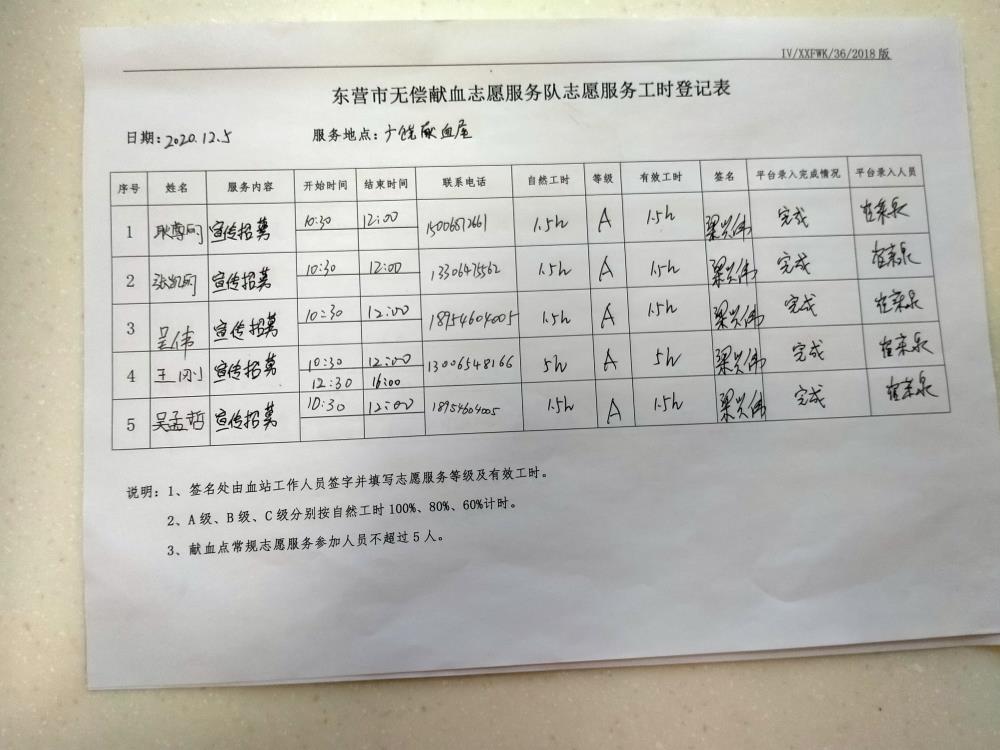 IV/XXFWK/36/2018版
东营市无偿献血志愿服务队志愿服务工时登记表
日期:2020.12.5 服务地点:广饶献血屋
序号 姓名 服务内容 开始时间 结束时间 联系电话 自然工时 等级 有效工时 签名 平台录入完成情况 平台录入人员
1 宣传招募 10:30 12:00 15006872661 1.5h A 1.5h 梁兴伟 完成
2 宣传招募 10:30 12:00 13306475562 1.5h A 1.5h 梁兴伟 完成
3 吴伟 宣传招募 10:30 12:00 18954604005 1.5h A 1.5h 梁兴伟 完成
4 王刚 宣传招募 10:30 12:00 13006548166 5h A 5h 梁兴伟 完成
12:30 16:00
5 吴孟哲 宣传招募 10:30 12:00 18954604005 1.5h A 1.5h 梁兴伟 完成
说明:1、签名处由血站工作人员签字并填写志愿服务等级及有效工时。
2、A级、B级、C级分别按自然工时100%、80%、60%计时。
3、献血点常规志愿服务参加人员不超过5人。